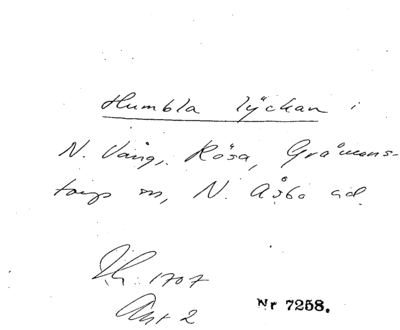 Humbla lyckan i
N. Vång, Rösa, Gråmans-
torps sn, N. Åsbo hd.
Lh. 1707
Akt 2
Nr 7258.